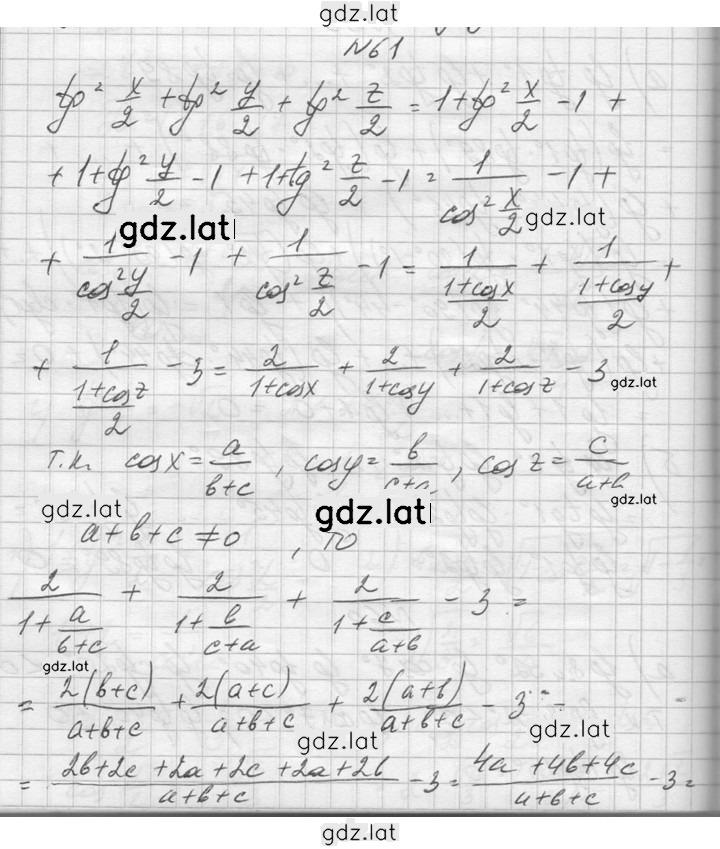 gdz.lat
N61
tg² x/2 + tg² y/2 + tg² z/2 = 1+tg² x/2 -1 +
+ 1+tg² y/2 -1 + 1+tg² z/2 -1 = 1/cos² x/2 -1 +
gdz.lat
gdz.lat
+ 1/cos² y/2 -1 + 1/cos² z/2 -1 = 1/((1+cosx)/2) + 1/((1+cosy)/2) +
+ 1/((1+cosz)/2) -3 = 2/(1+cosx) + 2/(1+cosy) + 2/(1+cosz) -3
gdz.lat
т.к. cosx = a/(b+c) , cosy = b/(c+a) , cos z = c/(a+b)
gdz.lat
gdz.lat
gdz.lat
a+b+c ≠ 0 , то
2/(1+a/(b+c)) + 2/(1+b/(c+a)) + 2/(1+c/(a+b)) -3 =
gdz.lat
= 2(b+c)/(a+b+c) + 2(a+c)/(a+b+c) + 2(a+b)/(a+b+c) -3 =
gdz.lat
gdz.lat
= (2b+2c+2a+2c+2a+2b)/(a+b+c) -3 = (4a+4b+4c)/(a+b+c) -3 =
gdz.lat